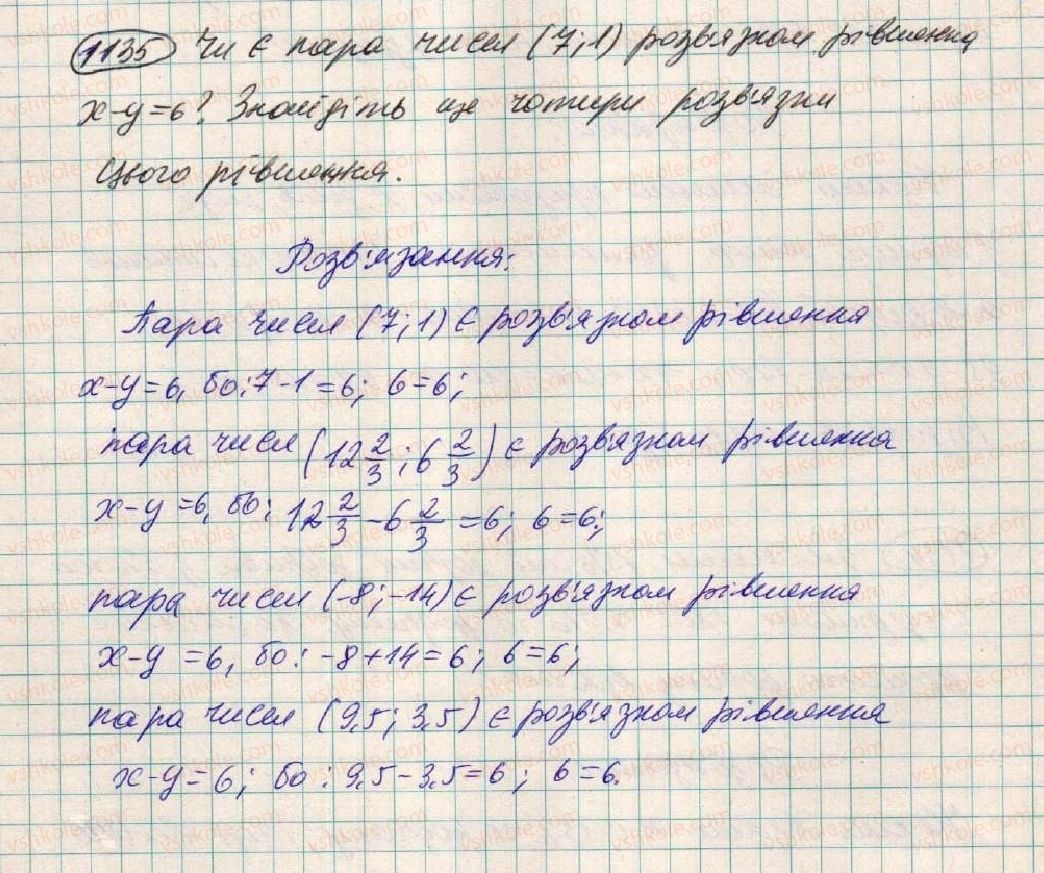 1135 Чи є пара чисел (7; 1) розв'язком рівняння
x-y=6? Знайдіть ще чотири розв'язки
цього рівняння.
Розв'язання:
Пара чисел (7; 1) є розв'язком рівняння
x-y=6, бо: 7-1=6; 6=6;
пара чисел (12 2/3; 6 2/3) є розв'язком рівняння
x-y=6, бо: 12 2/3 - 6 2/3 = 6; 6=6;
пара чисел (-8; -14) є розв'язком рівняння
x-y=6, бо: -8+14=6; 6=6;
пара чисел (9,5; 3,5) є розв'язком рівняння
x-y=6; бо: 9,5-3,5=6; 6=6.